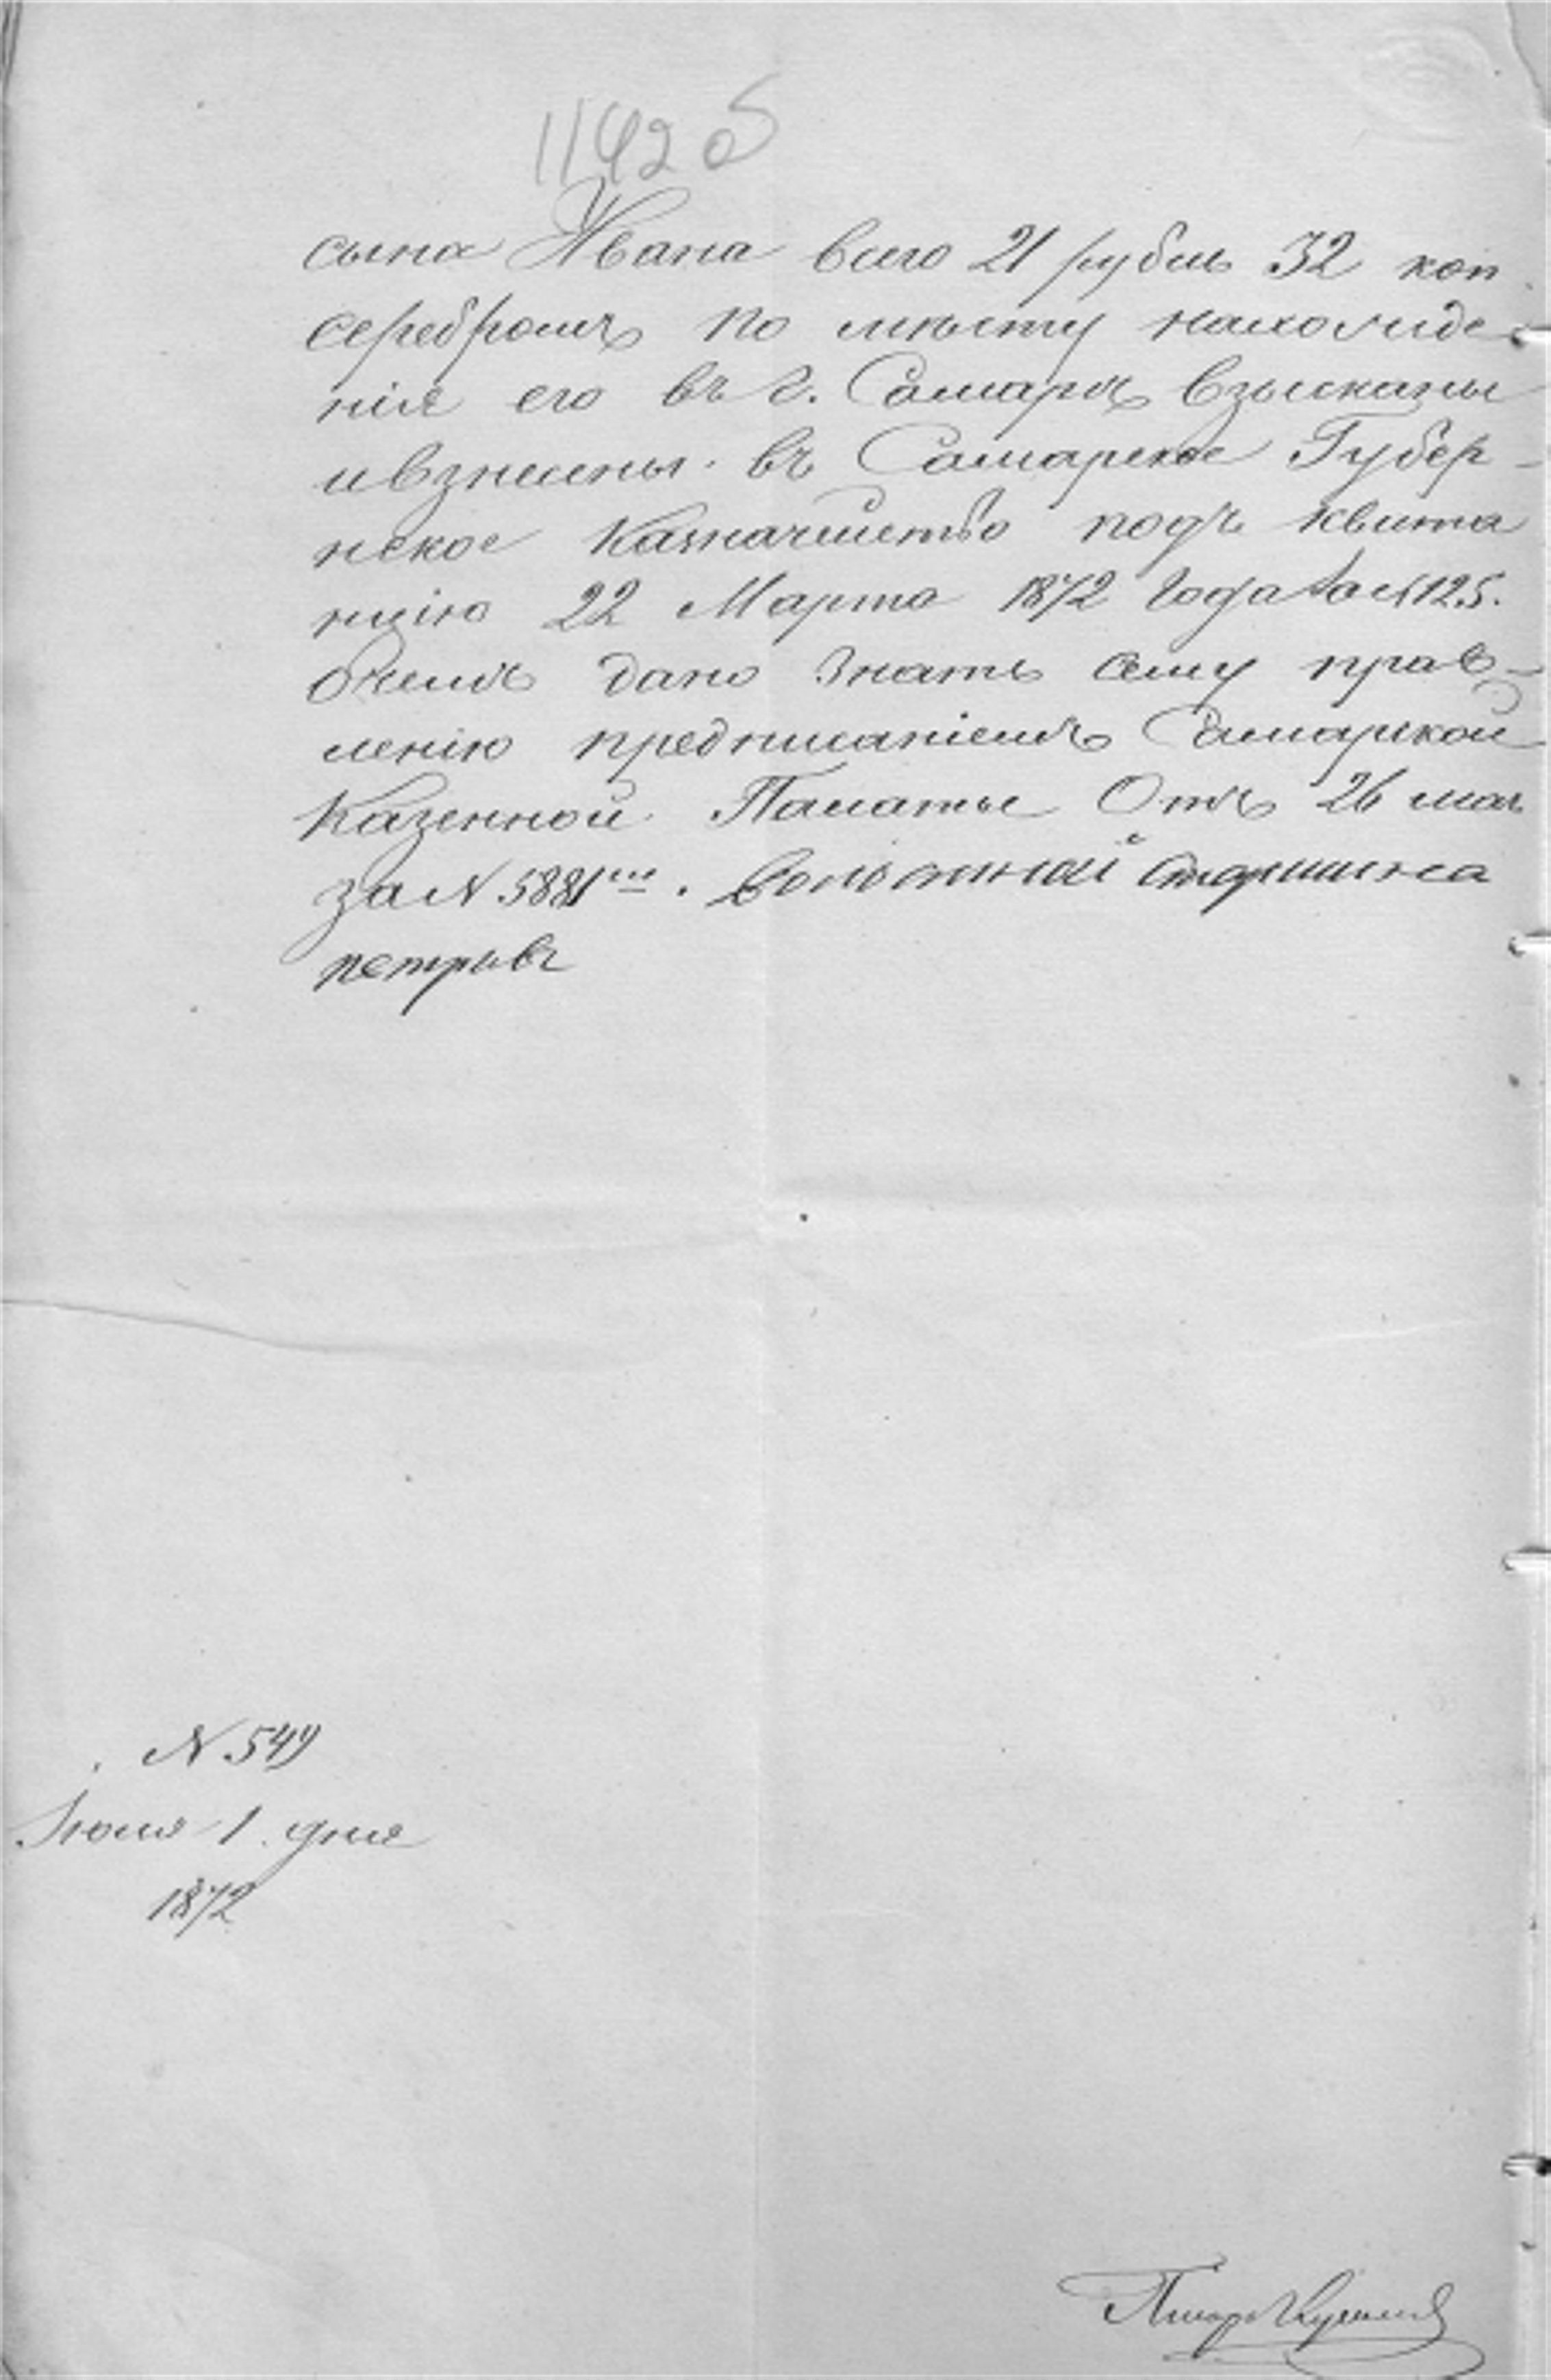 1142 об
сына Ивана всего 21 рубль 32 коп
серебромъ по мѣсту нахожде-
нія его въ г. Самарѣ взысканы
и взнесены въ Самарское Губер-
нское Казначейство подъ квита
нцію 22 Марта 1872 Года за № 125.
О чемъ дано знать сему прав-
ленію предписаніемъ Самарской
Казенной Палаты Отъ 26 мая
за № 5881мъ. Волостной Старшина
петровъ
№ 549
Іюля 1 дня
1872
Писарь